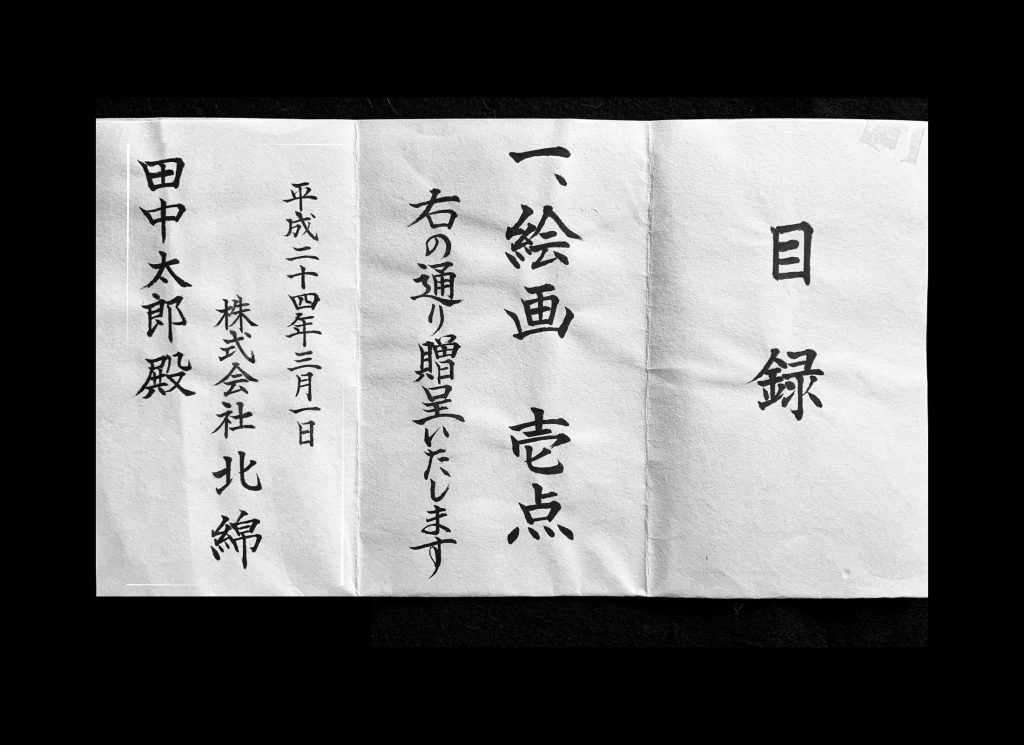 目録
一、絵画 壱点
右の通り贈呈いたします
平成二十四年三月一日
株式会社北綿
田中太郎殿